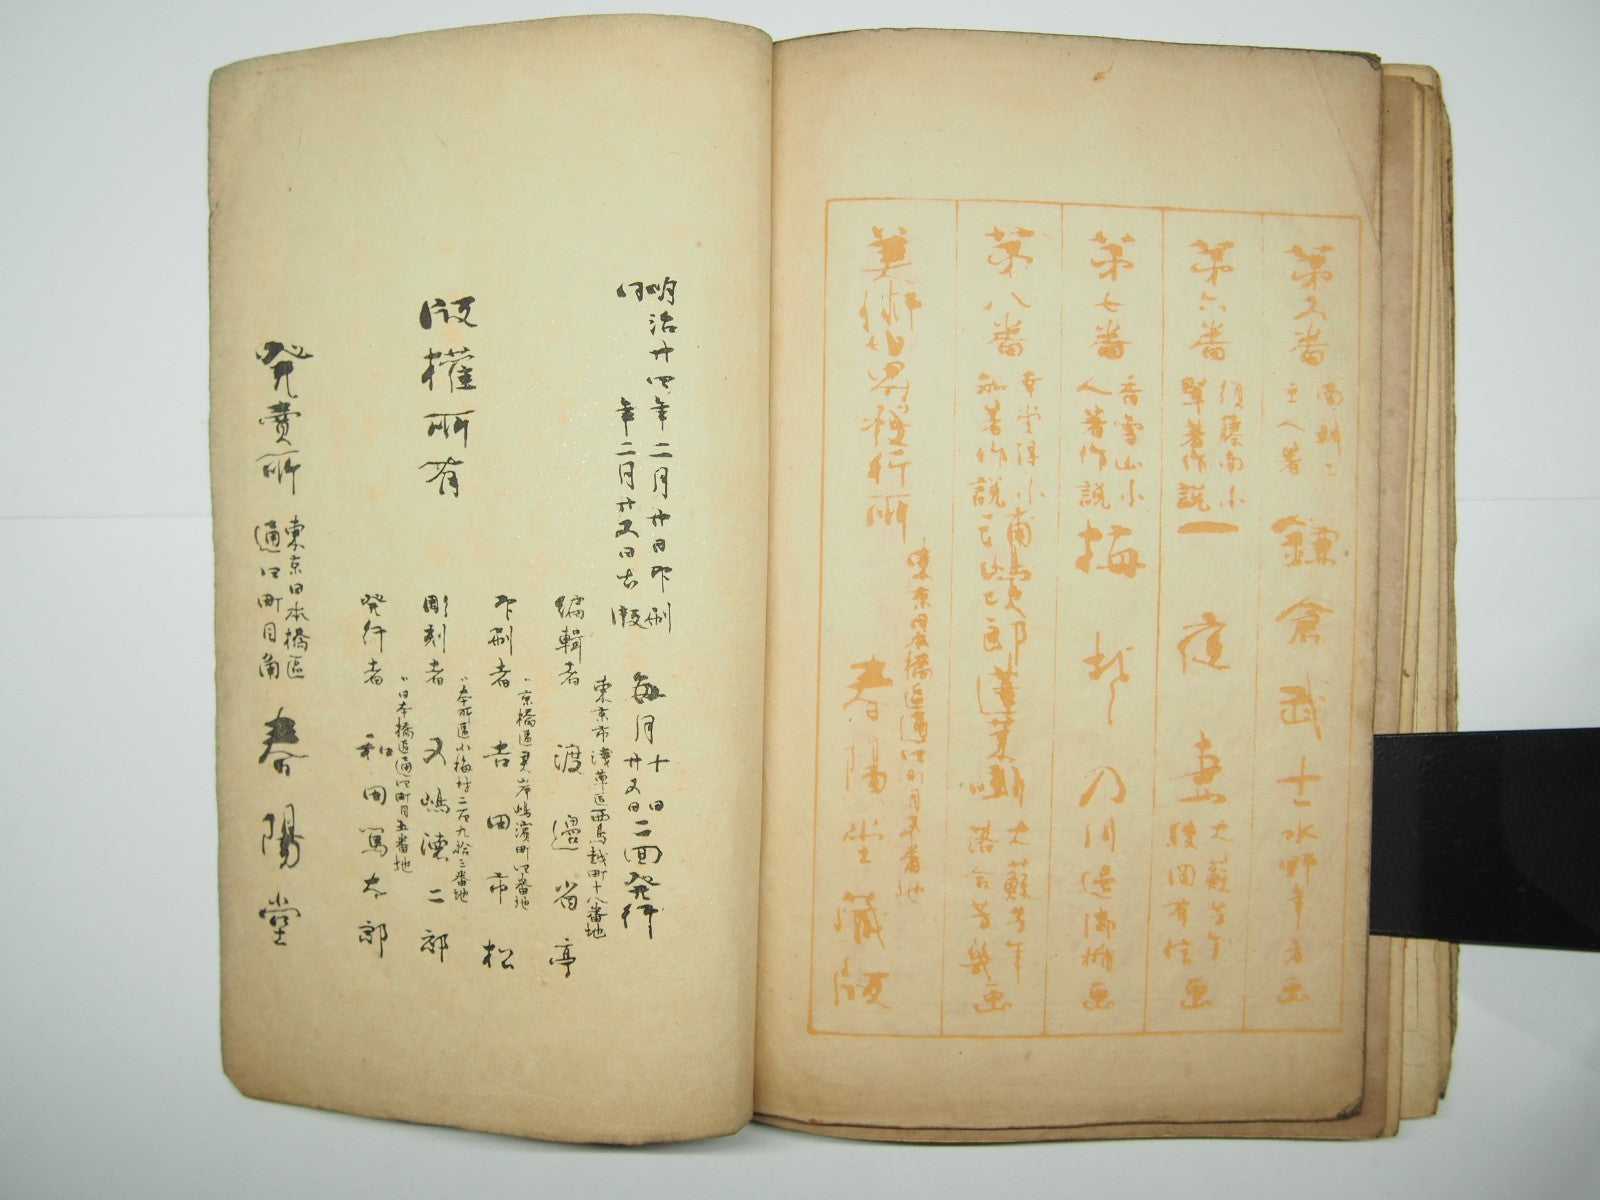 第五番
南新二
主人著
鎌倉武士
水野年方画
第六番
須藤南
翠著
小説
一夜妻
大蘇芳年
稜岡有信
画
第七番
香雪山
人著作
小説
梅
乃
渡邊省亭画
第八番
幸堂得
知著作
小説
浦嶋次郎蓬莱噺
大蘇芳年
落合芳幾
画
美術世界発行所
東京日本橋区通四丁目五番地
春陽堂蔵版
明治廿四年二月廿日印刷
同年二月廿五日出版
毎月十日
廿五日二回発行
東京市浅草区西鳥越町十八番地
編輯者 渡邉省亭
〃京橋区霊岸嶋濱町四番地
印刷者 吉田市松
〃本所区小梅村二百九拾三番地
彫刻者 五嶋徳二郎
〃日本橋区通四町目五番地
発行者 和田篤太郎
版権所有
発賣所
東京日本橋區
通四町目角
春陽堂